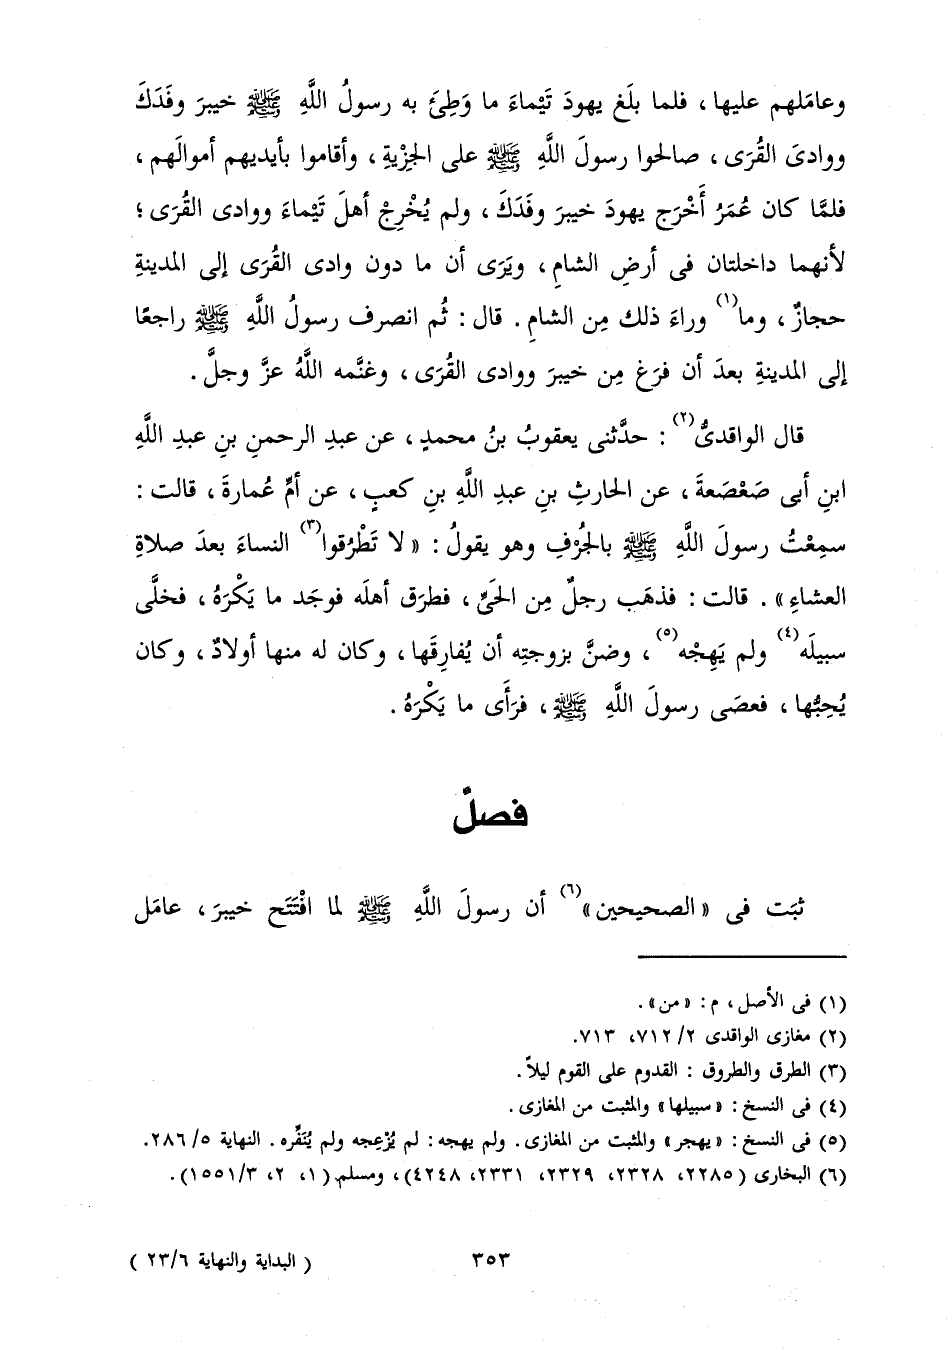 وعامَلهم عليها، فلما بلَغ يهودَ تَيْماءَ ما وَطِئَ به رسولُ اللَّهِ ﷺ خيبرَ وفَدَكَ
ووادىَ القُرَى، صالحوا رسولَ اللَّهِ ﷺ على الجِزْيةِ، وأقاموا بأيديهم أموالَهم،
فلمَّا كان عُمَرُ أَخْرَج يهودَ خيبرَ وفَدَكَ، ولم يُخْرِجْ أهلَ تَيْماءَ ووادى القُرَى؛
لأنهما داخلتان فى أرضِ الشامِ، ويَرَى أن ما دون وادى القُرَى إلى المدينةِ
حجازٌ، وما(١) وراءَ ذلك مِن الشامِ. قال: ثُم انصرف رسولُ اللَّهِ ﷺ راجعًا
إلى المدينةِ بعدَ أن فرَغ مِن خيبرَ ووادى القُرَى، وغنَّمه اللَّهُ عزَّ وجلَّ.
قال الواقدىُّ(٢): حدَّثنى يعقوبُ بنُ محمدٍ، عن عبدِ الرحمنِ بنِ عبدِ اللَّهِ
ابنِ أبى صَعْصَعةَ، عن الحارثِ بنِ عبدِ اللَّهِ بنِ كعبٍ، عن أمِّ عُمارةَ، قالت:
سمِعْتُ رسولَ اللَّهِ ﷺ بالجُرْفِ وهو يقولُ: «لا تَطْرُقوا(٣) النساءَ بعدَ صلاةِ
العشاءِ». قالت: فذهَب رجلٌ مِن الحَىِّ، فطرَق أهلَه فوجَد ما يَكْرَهُ، فخلَّى
سبيلَه(٤) ولم يَهِجْه(٥)، وضنَّ بزوجتِه أن يُفارِقَها، وكان له منها أولادٌ، وكان
يُحِبُّها، فعصَى رسولَ اللَّهِ ﷺ، فرَأَى ما يَكْرَهُ.
فصلٌ
ثبَت فى «الصحيحين»(٦) أن رسولَ اللَّهِ ﷺ لما افْتَتَح خيبرَ، عامَل
(١) فى الأصل، م: «من».
(٢) مغازى الواقدى ٢/ ٧١٢، ٧١٣.
(٣) الطرق والطروق: القدوم على القوم ليلاً.
(٤) فى النسخ: «سبيلها» والمثبت من المغازى.
(٥) فى النسخ: «يهجر» والمثبت من المغازى. ولم يهجه: لم يُزْعِجه ولم يُنَفِّره. النهاية ٥/ ٢٨٦.
(٦) البخارى (٢٢٨٥، ٢٣٢٨، ٢٣٢٩، ٢٣٣١، ٤٢٤٨)، ومسلم (١، ٢، ١٥٥١/٣).
٣٥٣
( البداية والنهاية ٢٣/٦ )